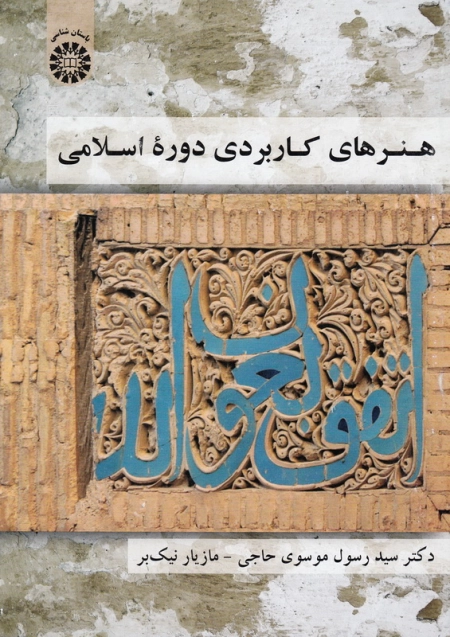 باستان شناسی
هنرهای کاربردی دورهٔ اسلامی
اتفق
العوان
الله
دکتر سید رسول موسوی حاجی - مازیار نیک‌بر